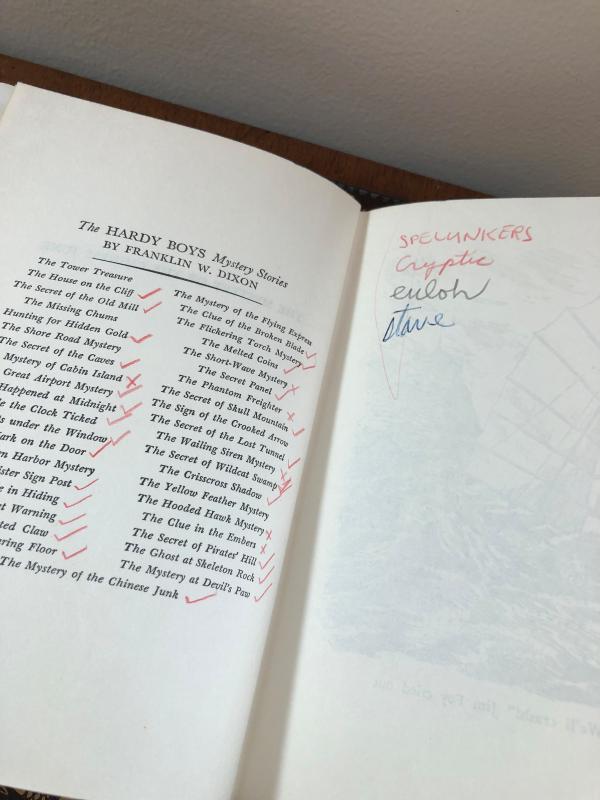 The HARDY BOYS Mystery Stories
BY FRANKLIN W. DIXON
The Tower Treasure
The House on the Cliff
The Secret of the Old Mill
The Missing Chums
Hunting for Hidden Gold
The Shore Road Mystery
The Secret of the Caves
Mystery of Cabin Island
Great Airport Mystery
Happened at Midnight
the Clock Ticked
under the Window
on the Door
Harbor Mystery
Sign Post
in Hiding
Warning
Claw
Floor
The Mystery of the Flying Express
The Clue of the Broken Blade
The Flickering Torch Mystery
The Melted Coins
The Short-Wave Mystery
The Secret Panel
The Phantom Freighter
The Secret of Skull Mountain
The Sign of the Crooked Arrow
The Secret of the Lost Tunnel
The Wailing Siren Mystery
The Secret of Wildcat Swamp
The Crisscross Shadow
The Yellow Feather Mystery
The Hooded Hawk Mystery
The Clue in the Embers
The Secret of Pirates' Hill
The Ghost at Skeleton Rock
The Mystery at Devil's Paw
The Mystery of the Chinese Junk
SPELUNKERS
Cryptic
stave